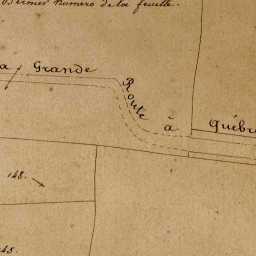 Dernier Numéro de la feuille.
a Grande Route à Québe
148.
145.